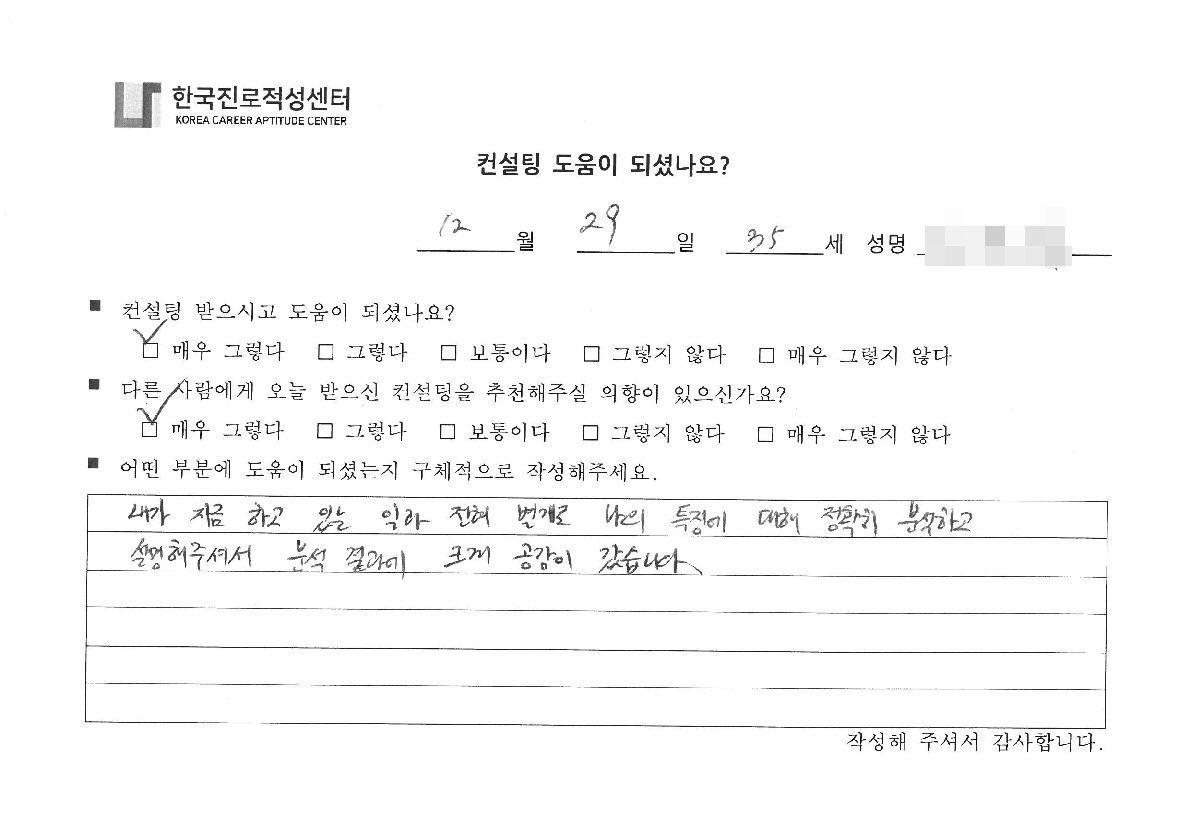 한국진로적성센터
KOREA CAREER APTITUDE CENTER
컨설팅 도움이 되셨나요?
12 월 29 일 35 세 성명
■ 컨설팅 받으시고 도움이 되셨나요?
☑ 매우 그렇다 □ 그렇다 □ 보통이다 □ 그렇지 않다 □ 매우 그렇지 않다
■ 다른 사람에게 오늘 받으신 컨설팅을 추천해주실 의향이 있으신가요?
☑ 매우 그렇다 □ 그렇다 □ 보통이다 □ 그렇지 않다 □ 매우 그렇지 않다
■ 어떤 부분에 도움이 되셨는지 구체적으로 작성해주세요.
내가 지금 하고 있는 일과 전혀 별개로 나의 특징에 대해 정확히 분석하고
설명해주셔서 분석 결과에 크게 공감이 갔습니다
작성해 주셔서 감사합니다.